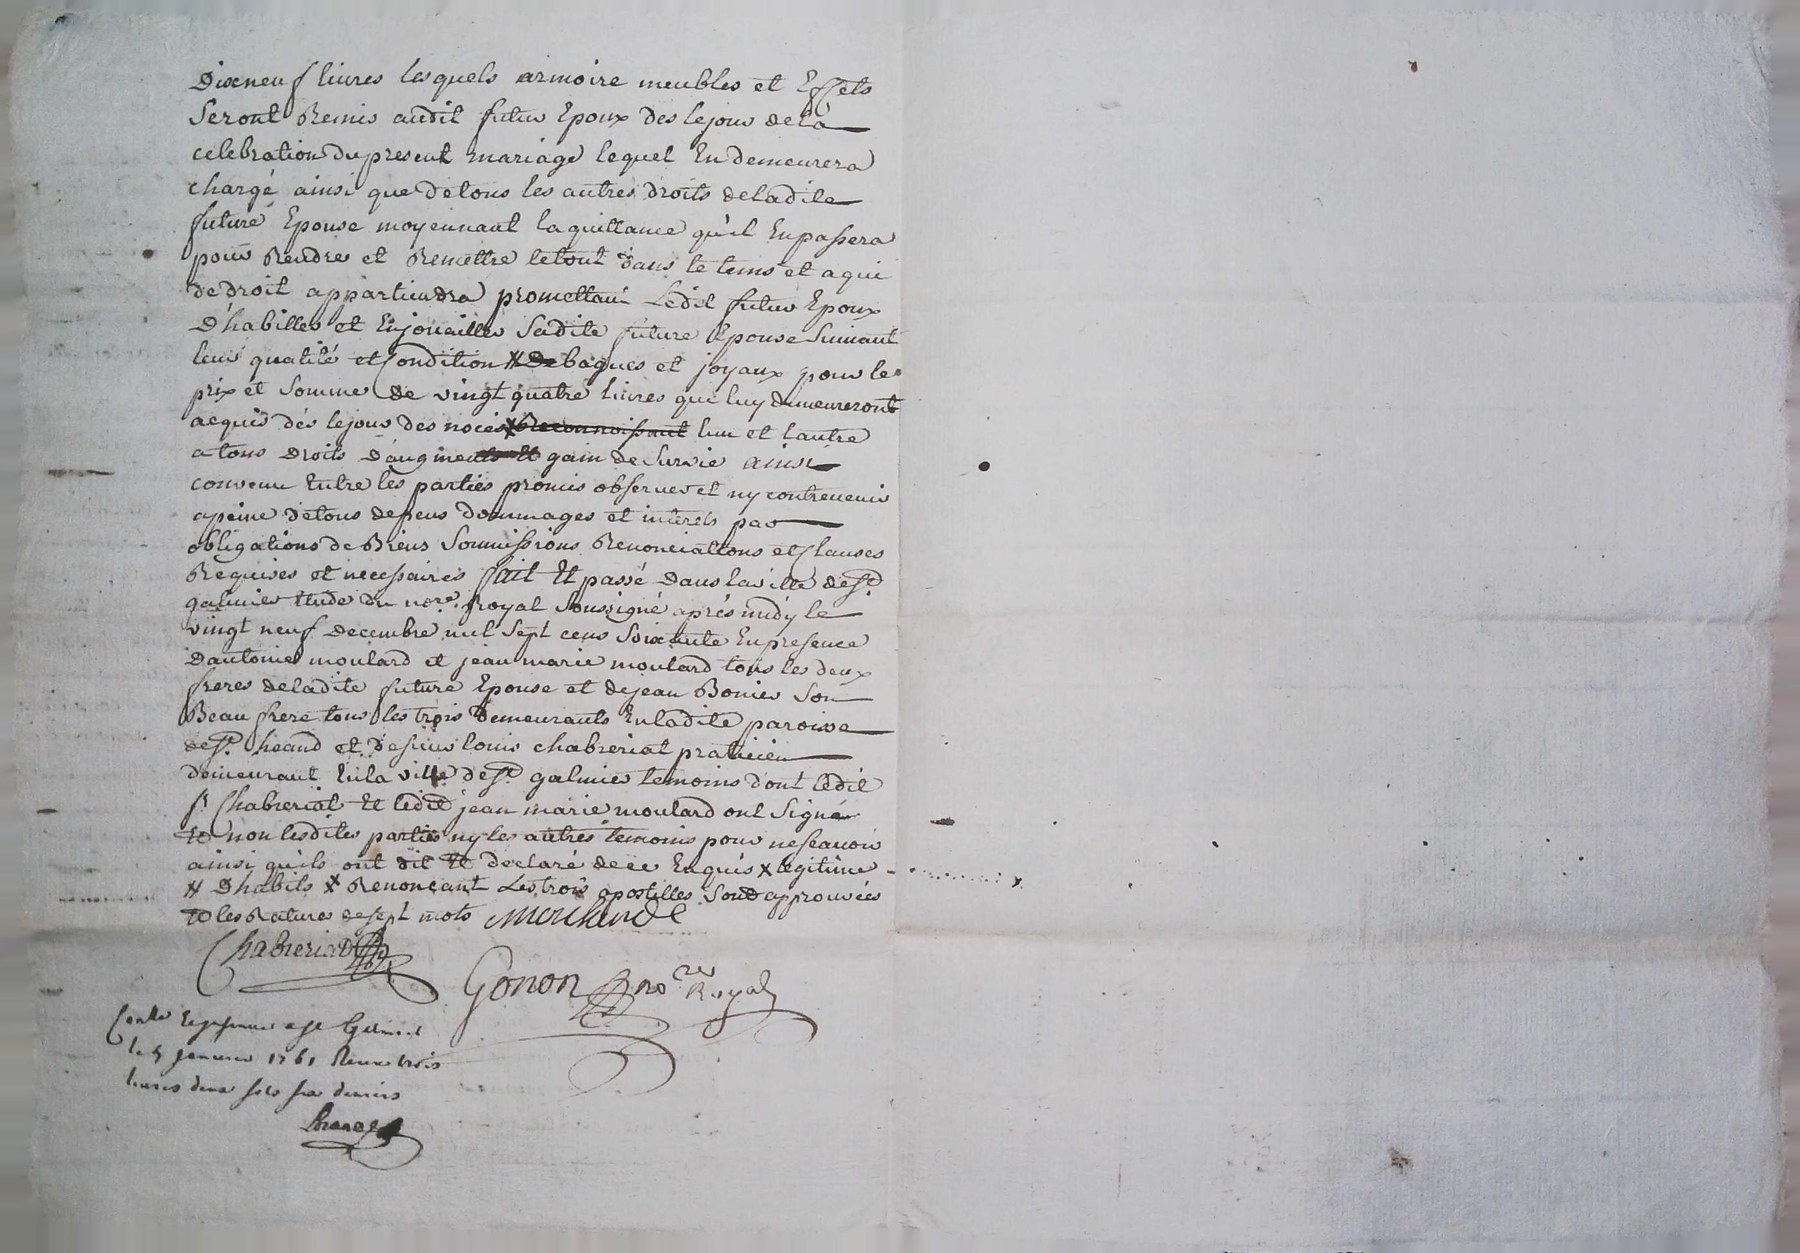 Dixneuf livres lesquels armoire meubles et Effets
Seront Remis audit futur Epoux des lejour dela
celebration dupresent mariage lequel En demeurera
chargé ainsi que detous les autres droits deladite
future Epouse moyennant laquittance qu'il Enpassera
pour Rendre et Remettre letout dans le tems et aqui
de droit appartiendra promettant Ledit futur Epoux
D'habiller et Enjoüailler Sadite future Epouse Suivant
leur qualité et Condition # De bagues et joyaux pour le
prix et Somme de vingt quatre livres que luy demeureront
acquis dés lejour des noces x Reconnoissant lun et lautre
atous Droits D'augment et gain de Survie ainsi
convenu Entre les parties promis observer et ny contrevenir
apeine detous depens dommages et interets par
obligations de Biens Soumissions Renonciations et Clauses
Requises et necessaires fait Et passé Dans la ville de St.
galmier Etude du nore. Royal Soussigné aprés midy le
vingt neuf decembre mil Sept cens Soixante Enpresence
Dantoine moulard et jean marie moulard tous les deux
freres deladite future Epouse et dejean Bonier Son
Beau frere tous les trois Demeurants Enladite paroisse
de St. heand et desieur louis chabreriat praticien
demeurant Enla ville de St. galmier temoins dont ledit
sr Chabreriat Et ledit jean marie moulard ont Signé
Et non lesdites parties ny les autres temoins pour nescavoir
ainsi qu'ils ont dit Et declaré dece Enquis x legitime
# D'habits x Renonçant Les trois apostilles Sont approuvées
Et les Ratures desept mots
Chabreriat
Gonon nore Royal
Conllé a St Galmier
le 5 janvier 1761 Receu trois
livres deux sols six deniers